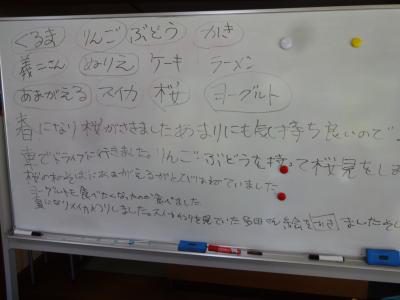 くるま りんご ぶどう かき
義二さん ぬりえ ケーキ ラーメン
あまがえる スイカ 桜 ヨーグルト
春になり桜がさきましたあまりにも気持ち良いので
車でドライブに行きました。りんご、ぶどうを持って桜見をしま
桜の木のそばにあまがえるがとびはねていました
ヨーグルトも食べたくなったので食べました
夏になりスイカわりしました。スイカわりを見ていた多田さん絵をかきましたそし